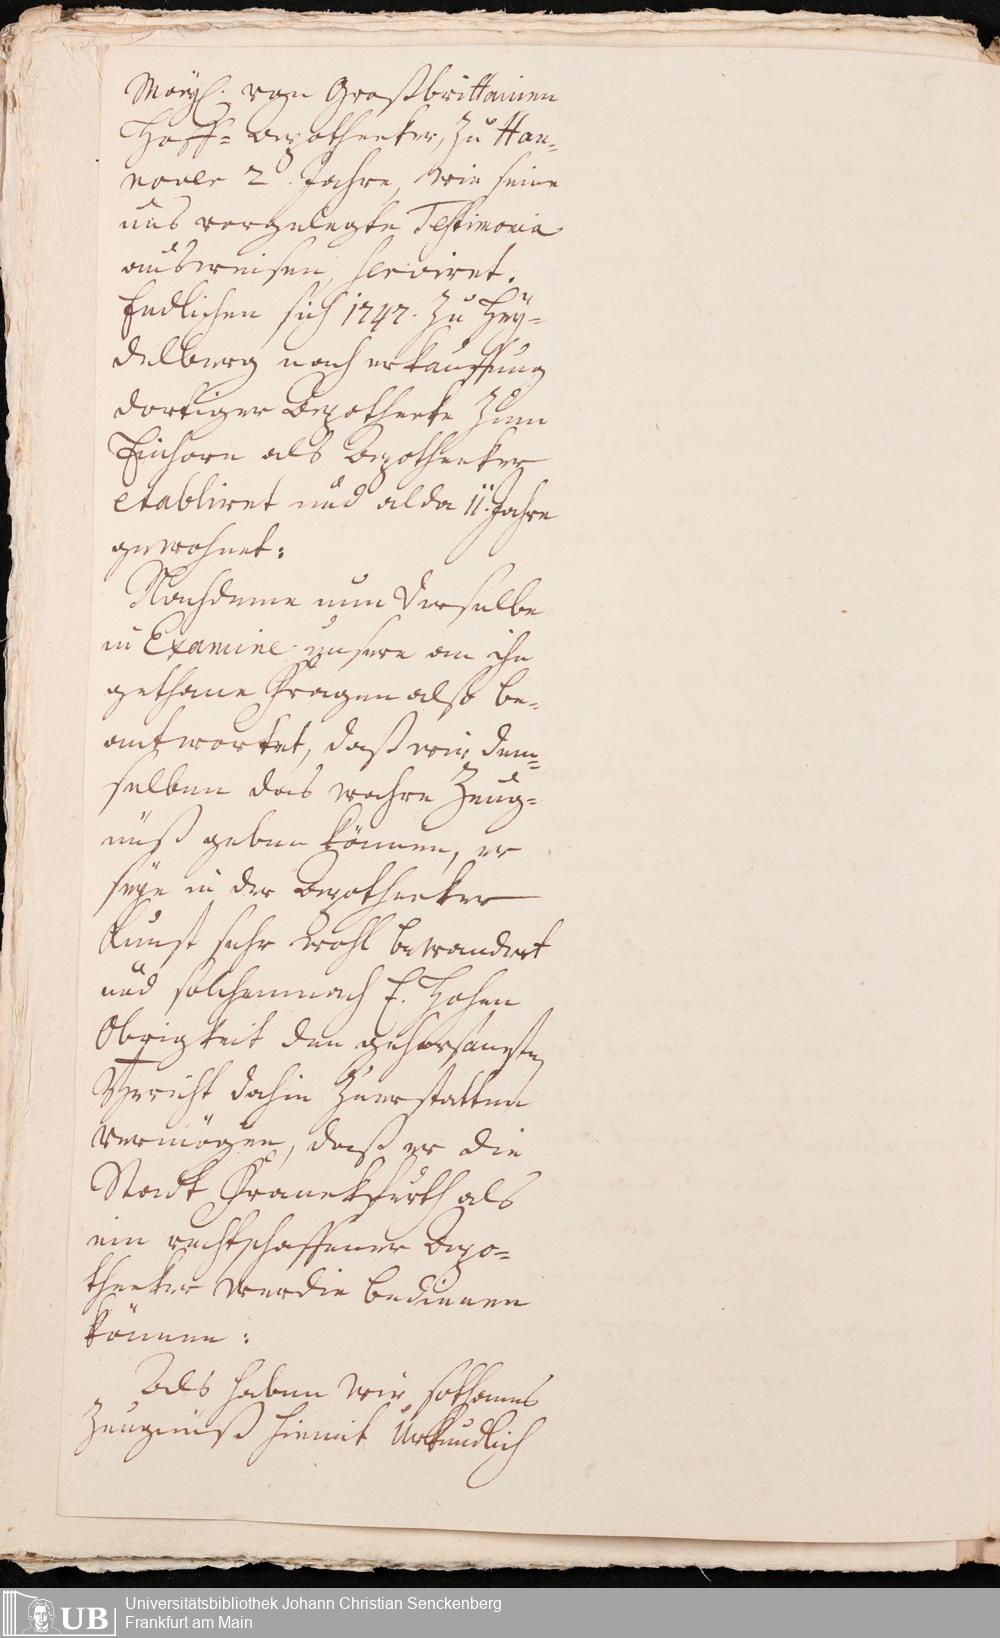 Mayl. von Großbrittainien
Hoff= Apotheeker, zu Han=
nover 2. Jahre, wie seine
uns vorgelegte Testimonia
ausweisen, serviret.
Endlichen sich 1747. zu Hey=
delberg nach erkauffung
dortiger Apotheeke zum
Einhorn als Apotheeker
etabliret und alda 11. Jahre
gewohnet:
Nachdeme nun derselbe
in Examine unsere an ihn
gethane Fragen also be=
antwortet, daß wir dem=
selben das wahre Zeug=
nüß geben können, er
seye in der Apotheeker
Kunst sehr wohl bewandert
und solchemnach E. Hohen
Obrigkeit den gehorsamsten
Bericht dahin zuerstatten
vermögen, daß er die
Stadt Franckfurth als
ein rechtschaffener Apo=
theeker werde bedienen
können:
Als haben wir sothanes
Zeugnüß hiemit Urkundlich
UB
Universitätsbibliothek Johann Christian Senckenberg
Frankfurt am Main